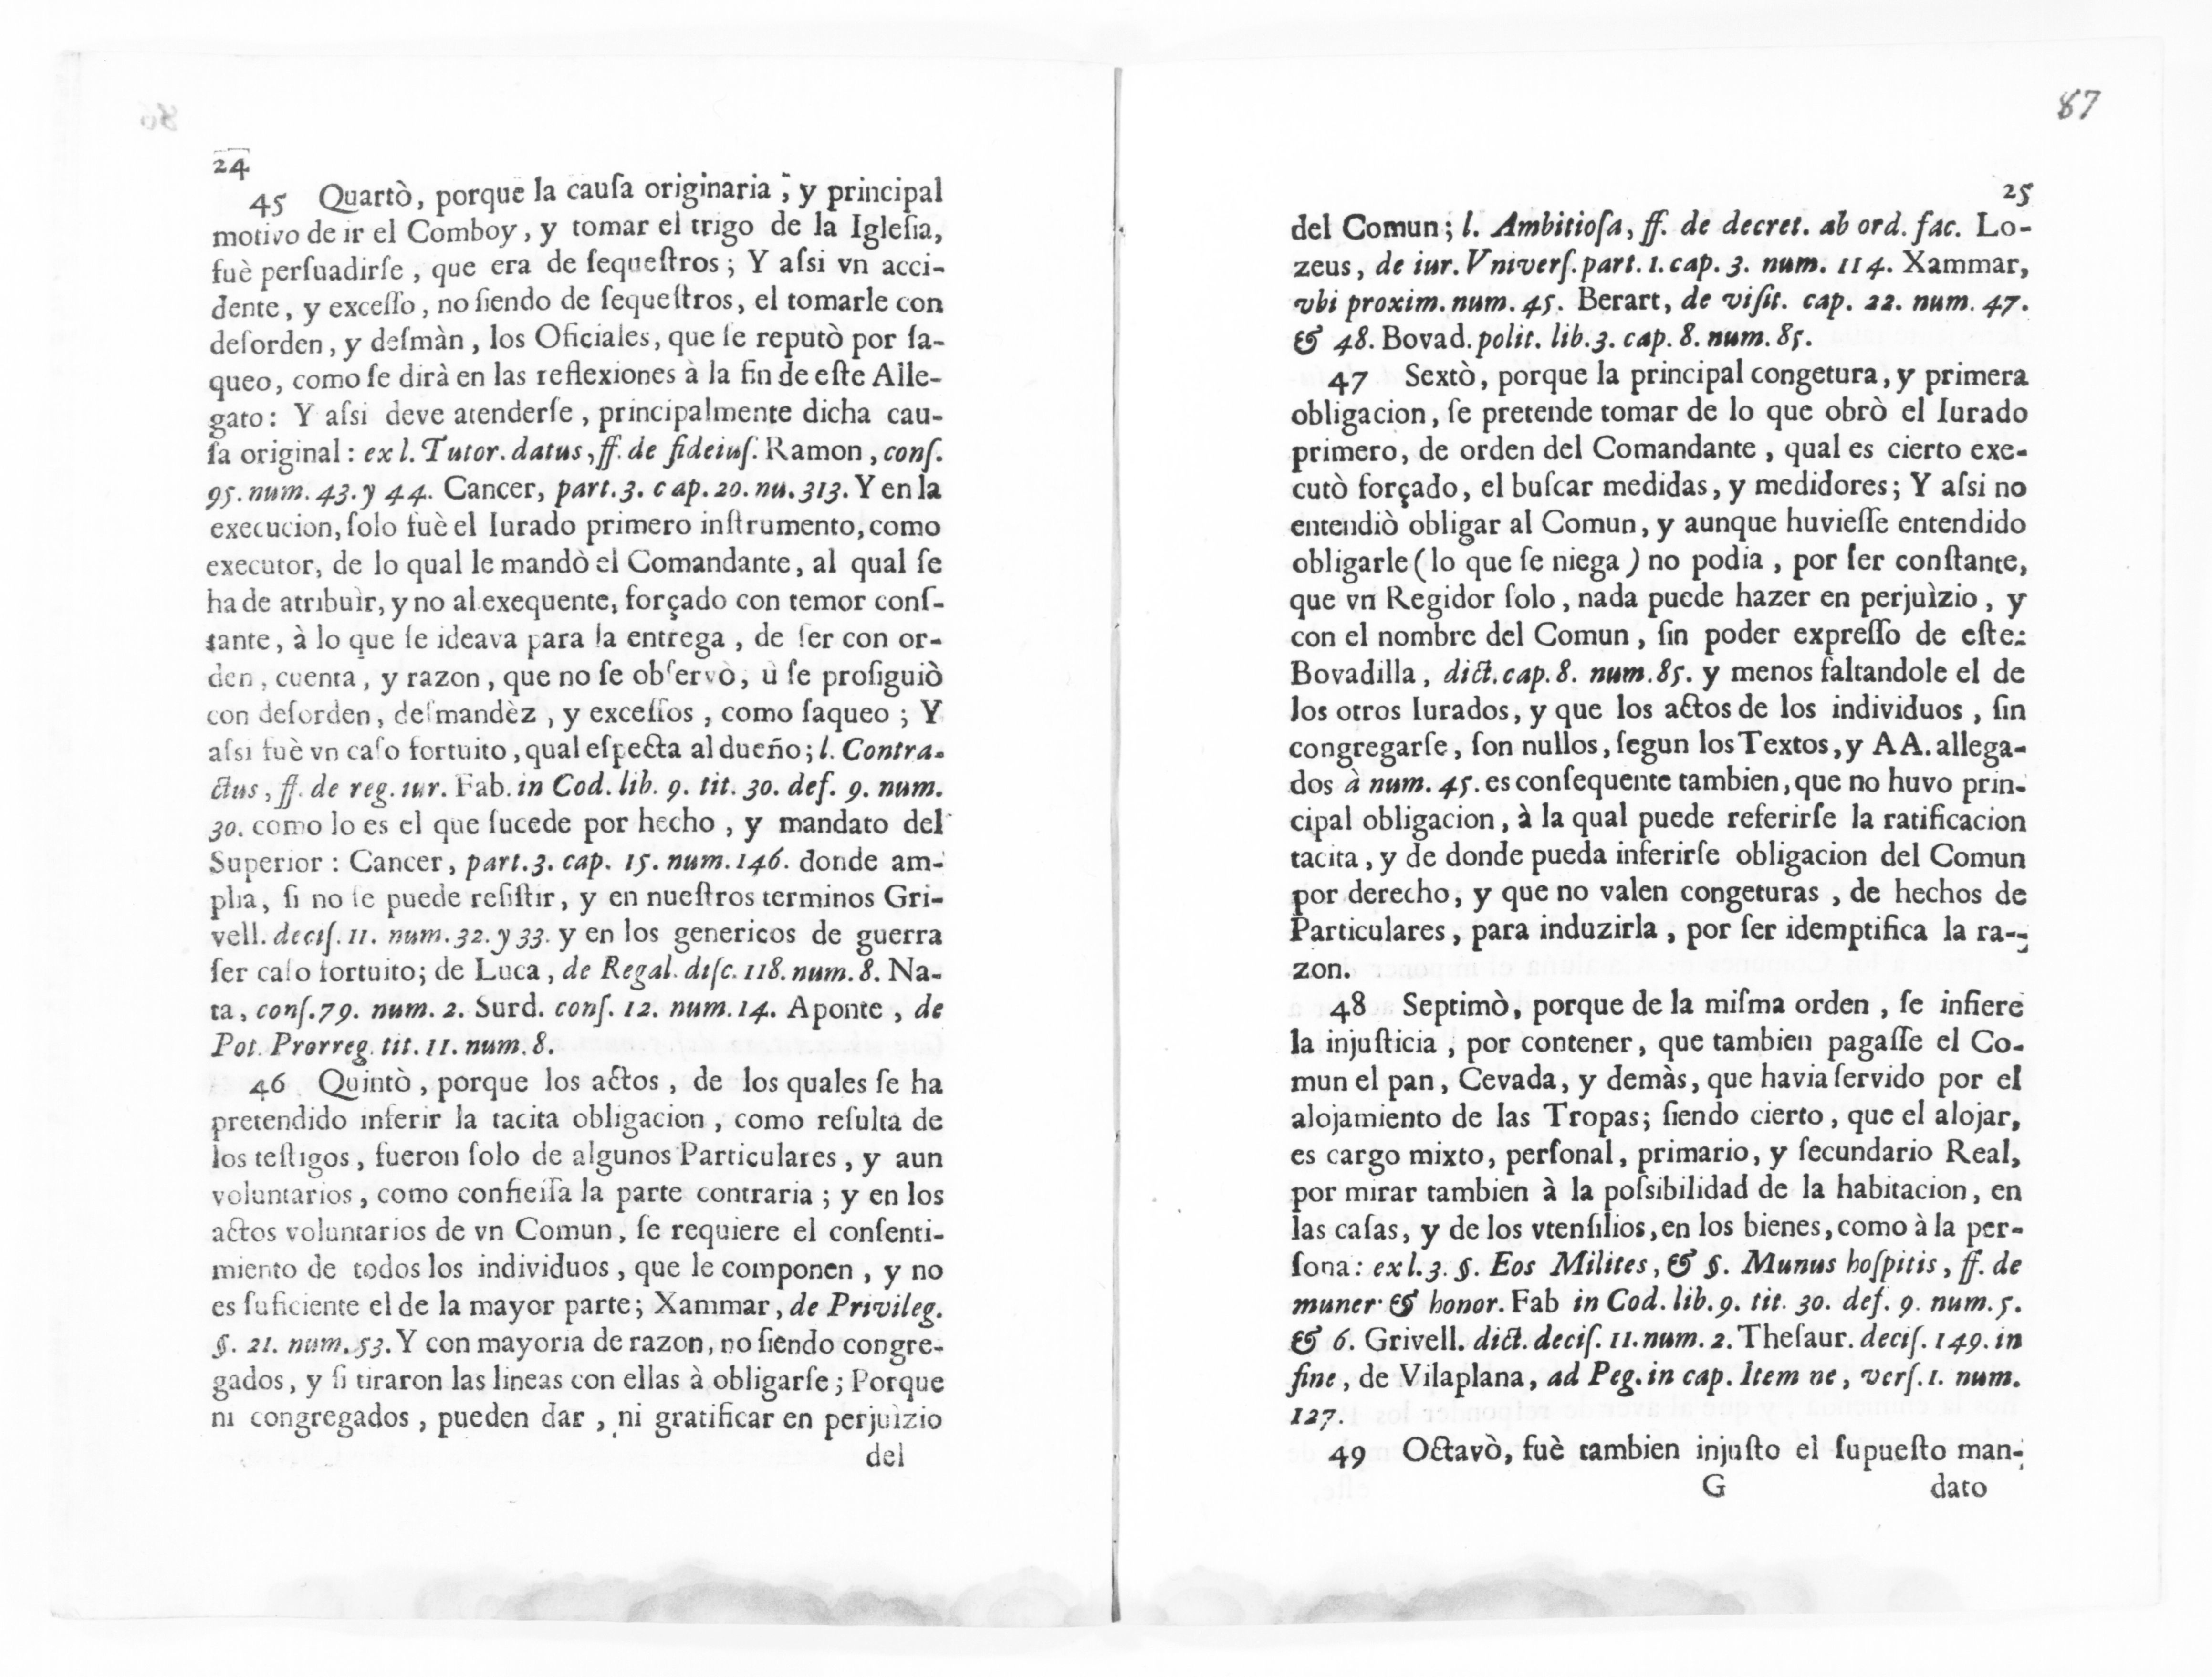 24
45 Quartò, porque la cauſa originaria, y principal
motivo de ir el Comboy, y tomar el trigo de la Igleſia,
fuè perſuadirſe, que era de ſequeſtros; Y aſsi vn acci-
dente, y exceſſo, no ſiendo de ſequeſtros, el tomarle con
deſorden, y deſmàn, los Oficiales, que ſe reputò por ſa-
queo, como ſe dirà en las reflexiones à la fin de eſte Alle-
gato: Y aſsi deve atenderſe, principalmente dicha cau-
ſa original: ex l. Tutor. datus, ff. de fideiuſ. Ramon, conſ.
95. num. 43. y 44. Cancer, part. 3. cap. 20. nu. 313. Y en la
execucion, ſolo fuè el Iurado primero inſtrumento, como
executor, de lo qual le mandò el Comandante, al qual ſe
ha de atribuìr, y no al exequente, forçado con temor conſ-
tante, à lo que ſe ideava para la entrega, de ſer con or-
den, cuenta, y razon, que no ſe obſervò, ù ſe proſiguiò
con deſorden, deſmandèz, y exceſſos, como ſaqueo; Y
aſsi fuè vn caſo fortuito, qual eſpecta al dueño; l. Contra-
ctus, ff. de reg. iur. Fab. in Cod. lib. 9. tit. 30. def. 9. num.
30. como lo es el que ſucede por hecho, y mandato del
Superior: Cancer, part. 3. cap. 15. num. 146. donde am-
plia, ſi no ſe puede reſiſtir, y en nueſtros terminos Gri-
vell. deciſ. 11. num. 32. y 33. y en los genericos de guerra
ſer caſo fortuito; de Luca, de Regal. diſc. 118. num. 8. Na-
ta, conſ. 79. num. 2. Surd. conſ. 12. num. 14. Aponte, de
Pot. Prorreg. tit. 11. num. 8.
46 Quintò, porque los actos, de los quales ſe ha
pretendido inferir la tacita obligacion, como reſulta de
los teſtigos, fueron ſolo de algunos Particulares, y aun
voluntarios, como confieſſa la parte contraria; y en los
actos voluntarios de vn Comun, ſe requiere el conſenti-
miento de todos los individuos, que le componen, y no
es ſuficiente el de la mayor parte; Xammar, de Privileg.
§. 21. num. 53. Y con mayoria de razon, no ſiendo congre-
gados, y ſi tiraron las lineas con ellas à obligarſe; Porque
ni congregados, pueden dar, ni gratificar en perjuìzio
del
87
25
del Comun; l. Ambitioſa, ff. de decret. ab ord. fac. Lo-
zeus, de iur. Vniverſ. part. 1. cap. 3. num. 114. Xammar,
vbi proxim. num. 45. Berart, de viſit. cap. 22. num. 47.
& 48. Bovad. polit. lib. 3. cap. 8. num. 85.
47 Sextò, porque la principal congetura, y primera
obligacion, ſe pretende tomar de lo que obrò el Iurado
primero, de orden del Comandante, qual es cierto exe-
cutò forçado, el buſcar medidas, y medidores; Y aſsi no
entendiò obligar al Comun, y aunque huvieſſe entendido
obligarle (lo que ſe niega) no podia, por ſer conſtante,
que vn Regidor ſolo, nada puede hazer en perjuìzio, y
con el nombre del Comun, ſin poder expreſſo de eſte:
Bovadilla, dict. cap. 8. num. 85. y menos faltandole el de
los otros Iurados, y que los actos de los individuos, ſin
congregarſe, ſon nullos, ſegun los Textos, y AA. allega-
dos à num. 45. es conſequente tambien, que no huvo prin-
cipal obligacion, à la qual puede referirſe la ratificacion
tacita, y de donde pueda inferirſe obligacion del Comun
por derecho, y que no valen congeturas, de hechos de
Particulares, para induzirla, por ſer idemptifica la ra-
zon.
48 Septimò, porque de la miſma orden, ſe infiere
la injuſticia, por contener, que tambien pagaſſe el Co-
mun el pan, Cevada, y demàs, que havia ſervido por el
alojamiento de las Tropas; ſiendo cierto, que el alojar,
es cargo mixto, perſonal, primario, y ſecundario Real,
por mirar tambien à la poſsibilidad de la habitacion, en
las caſas, y de los vtenſilios, en los bienes, como à la per-
ſona: ex l. 3. §. Eos Milites, & §. Munus hoſpitis, ff. de
muner. & honor. Fab in Cod. lib. 9. tit. 30. def. 9. num. 5.
& 6. Grivell. dict. deciſ. 11. num. 2. Theſaur. deciſ. 149. in
fine, de Vilaplana, ad Peg. in cap. Item ne, verſ. 1. num.
127.
49 Octavò, fuè tambien injuſto el ſupueſto man-
G dato